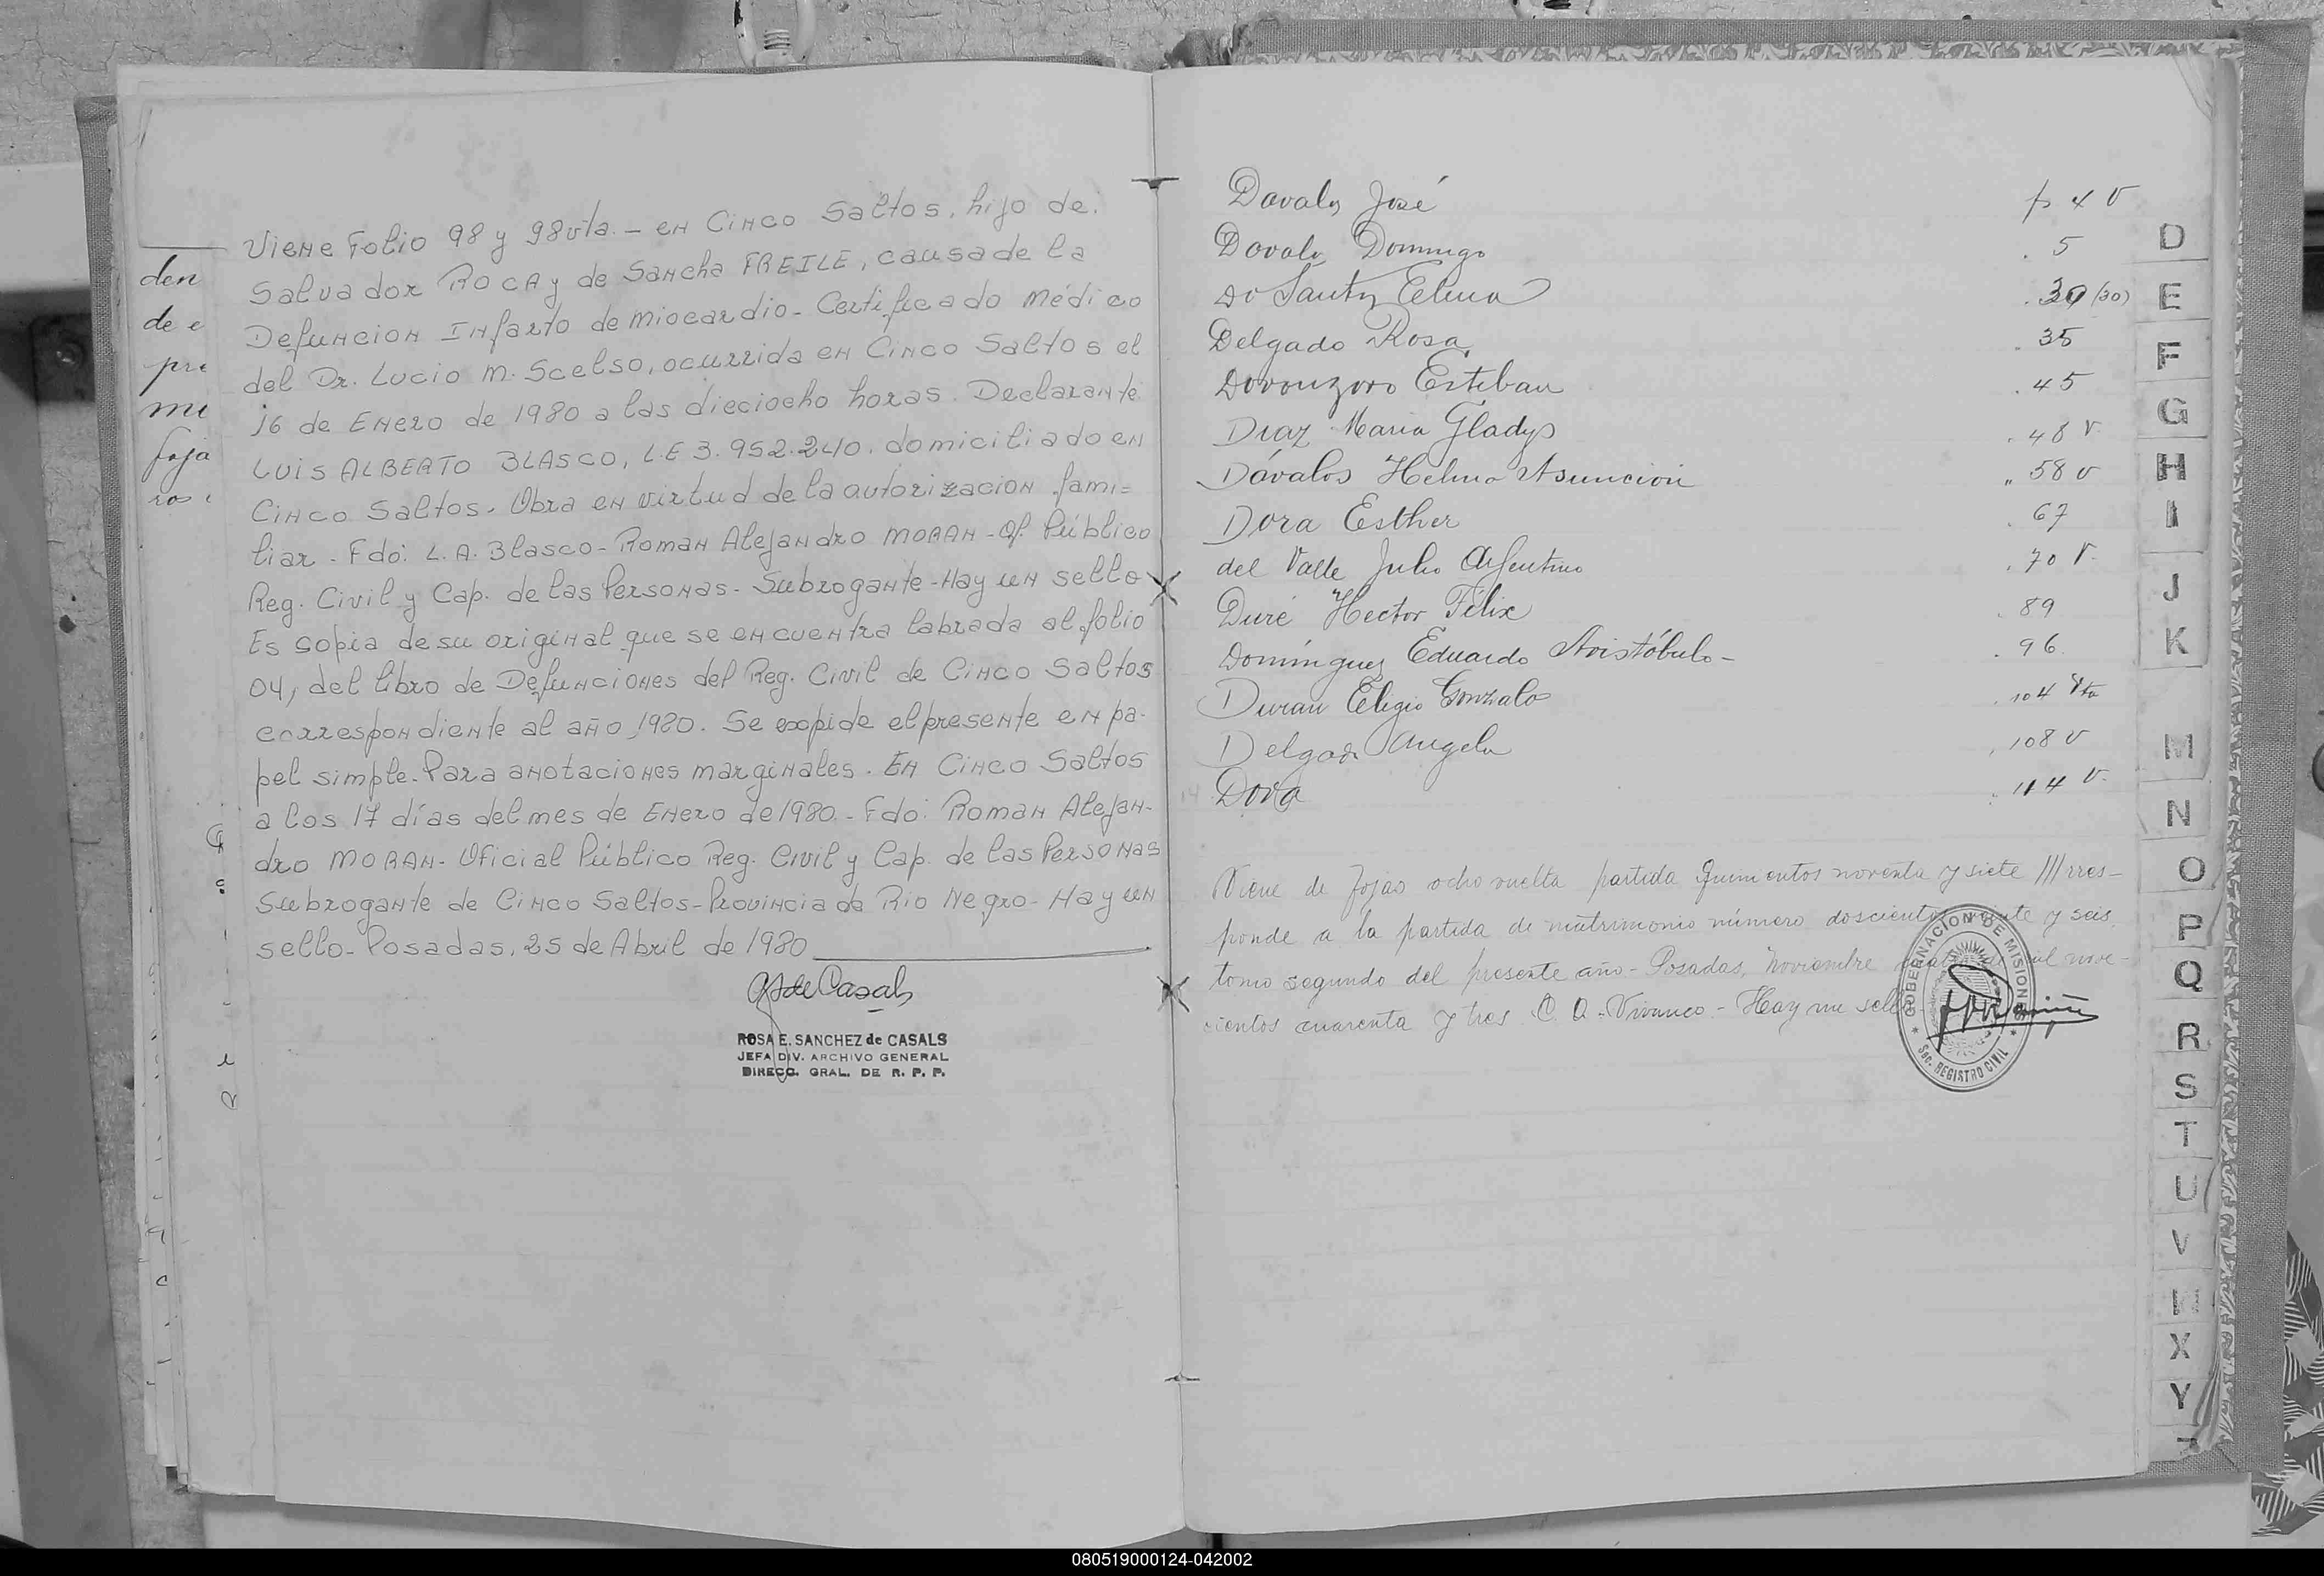 Viene Folio 98 y 98vta. - en Cinco Saltos, hijo de:
Salvador ROCA y de Sancha FREILE, causa de la
Defuncion Infarto de miocardio - Certificado Médico
del Dr. Lucio M. Scelso, ocurrida en Cinco Saltos el
16 de Enero de 1980 a las dieciocho horas. Declarante
LUIS ALBERTO BLASCO, L.E 3.952.240. domiciliado en
Cinco Saltos. Obra en virtud de la autorizacion fami=
liar - Fdo: L. A. Blasco - Roman Alejandro MORAN - Of. Público
Reg. Civil y Cap. de las Personas - Subrogante - Hay un sello
Es copia de su original que se encuentra labrada al folio
04, del libro de Defunciones del Reg. Civil de Cinco Saltos
correspondiente al año 1980. Se expide el presente en pa-
pel simple. Para anotaciones marginales. En Cinco Saltos
a los 17 días del mes de Enero de 1980. - Fdo: Roman Alejan-
dro MORAN - Oficial Público Reg. Civil y Cap. de las Personas
Subrogante de Cinco Saltos - Provincia de Rio Negro - Hay un
sello - Posadas, 25 de Abril de 1980
ROSA E. SANCHEZ de CASALS
JEFA DIV. ARCHIVO GENERAL
DIRECC. GRAL. DE R. P. P.
den
de e
pre
mi
foja
ros
Davalos José
Dovalo Domingo 5
Do Santos Elma 30 (30)
Delgado Rosa 35
Esteban 45
Diaz Maria Gladys 48 v
Dávalos Helma Asunción " 58 v
Dora Esther 67
del Valle Julio Argentino 70 v.
Duré Hector Félix 89
Domínguez Eduardo Aristóbulo - 96
Duran Eligio Gonzalo 104 vta
Delgado Angela 108 v
Dora 114 v.
Viene de fojas ocho vuelta partida Quinientos noventa y siete
ponde a la partida de matrimonio número doscientos veinte y seis
tomo segundo del presente año - Posadas, Noviembre de mil nove-
cientos cuarenta y tres. C. A. Vivanco - Hay un sello
GOBERNACION DE MISIONES
Sec. REGISTRO CIVIL
D
E
F
G
H
I
J
K
M
N
O
P
Q
R
S
T
U
V
X
Y
080519000124-042002